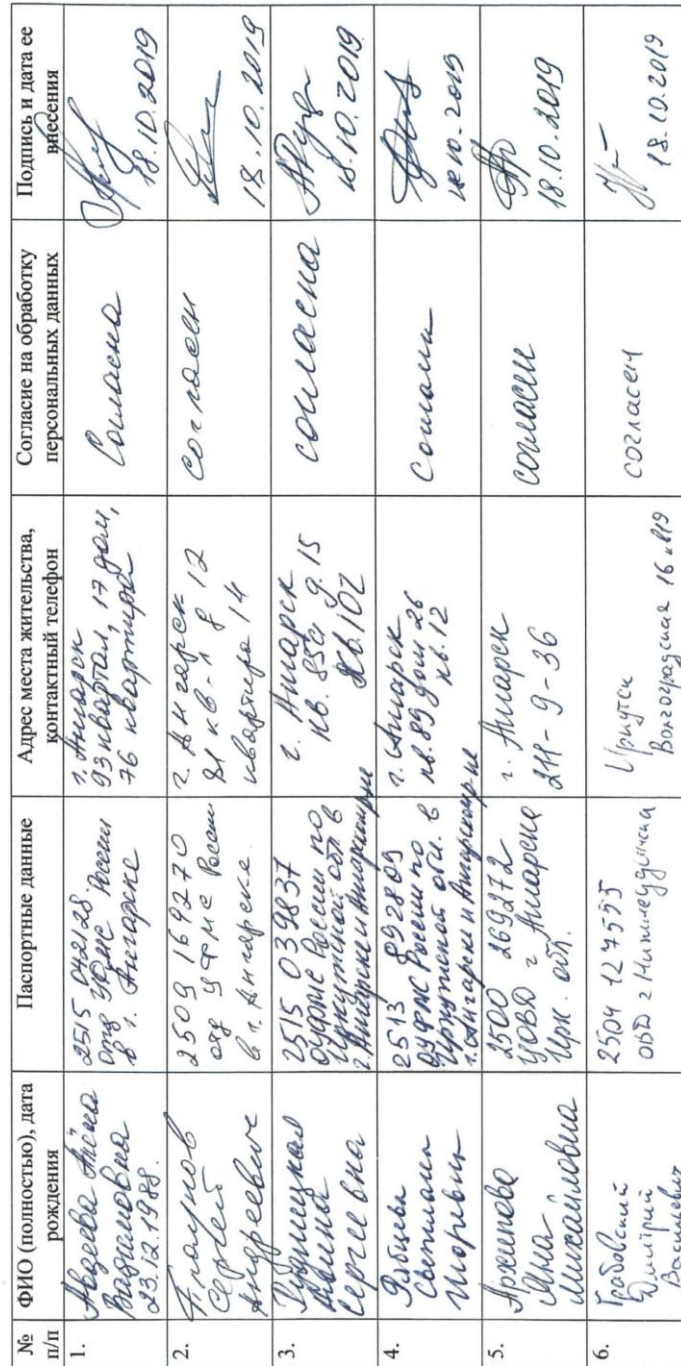 № п/п
ФИО (полностью), дата рождения
Паспортные данные
Адрес места жительства, контактный телефон
Согласие на обработку персональных данных
Подпись и дата ее внесения
1.
Авдеева Алёна
Вадимовна
23.12.1988.
2515 042128
отд УФМС России
в г. Ангарске
г. Ангарск
93 квартал, 17 дом,
76 квартира
Согласна
18.10.2019
2.
Сергей
Андреевич
2509 169270
отд УФМС России
в г. Ангарске.
г. Ангарск
81 кв-л д 12
квартира 14
согласен
18.10.2019
3.
Рудницкая
Сергеевна
2515 039837
ОУФМС России по
Иркутской обл в
г. Ангарске и Ангарском р-не
г. Ангарск
кв. 85а д. 15
кв. 102
согласна
18.10.2019
4.
Рябцева
Светлана
Игоревна
2513 892809
ОУФМС России по
Иркутской обл. в
г. Ангарске и Ангарском р-не
г. Ангарск
кв. 89 дом 26
кв. 12
18.10.2019
5.
Архипова
Яна
Михайловна
2500 269272
УОВД г Ангарска
Ирк. обл.
г. Ангарск
211-9-36
18.10.2019
6.
Грабовский
Дмитрий
Васильевич
2504 127555
ОВД г Нижнеудинска
Иркутск
Волгоградская
согласен
18.10.2019